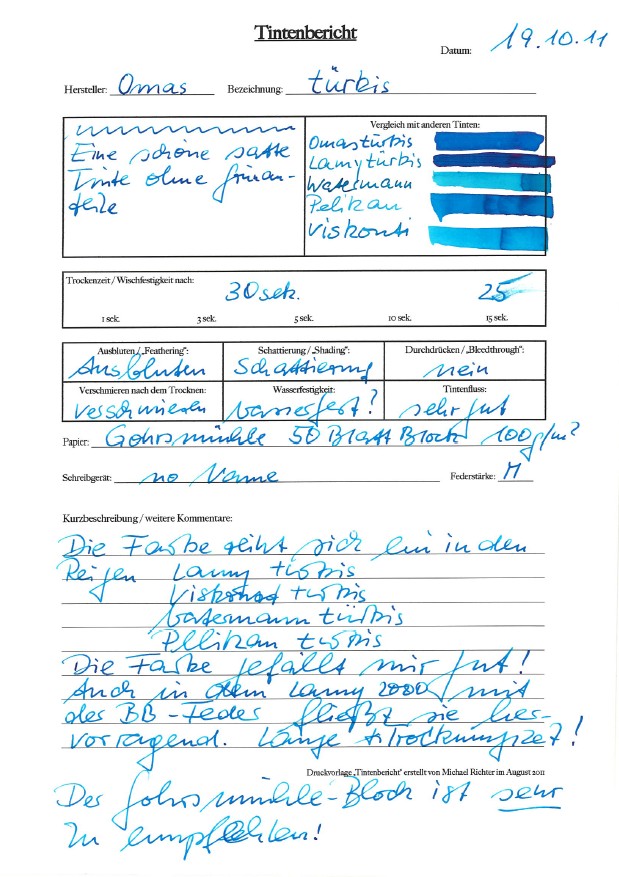 Tintenbericht
Datum: 19.10.11
Hersteller: Omas Bezeichnung: türkis
Eine schöne satte
Tinte ohne grünan-
teile
Vergleich mit anderen Tinten:
Omas türkis
Lamy türkis
Watermann
Pelikan
Viskonti
Trockenzeit / Wischfestigkeit nach:
30 sek. 25
1 sek. 3 sek. 5 sek. 10 sek. 15 sek.
Ausbluten / „Feathering": Schattierung / „Shading": Durchdrücken / „Bleedthrough":
Ausbluten Schattierung nein
Verschmieren nach dem Trocknen: Wasserfestigkeit: Tintenfluss:
verschmieren wasserfest? sehr gut
Papier: Gohrsmühle 50 Blatt Block 100g/m²
Schreibgerät: no Name Federstärke: M
Kurzbeschreibung / weitere Kommentare:
Die Farbe reiht sich ein in den
Reigen Lamy türkis
türkis
Watermann türkis
Pelikan türkis
Die Farbe gefällt mir gut!
Auch in dem Lamy 2000 mit
der BB-Feder fließt sie her-
vorragend. Lange
Druckvorlage „Tintenbericht" erstellt von Michael Richter im August 2011
Der Gohrsmühle-Block ist sehr
zu empfehlen!